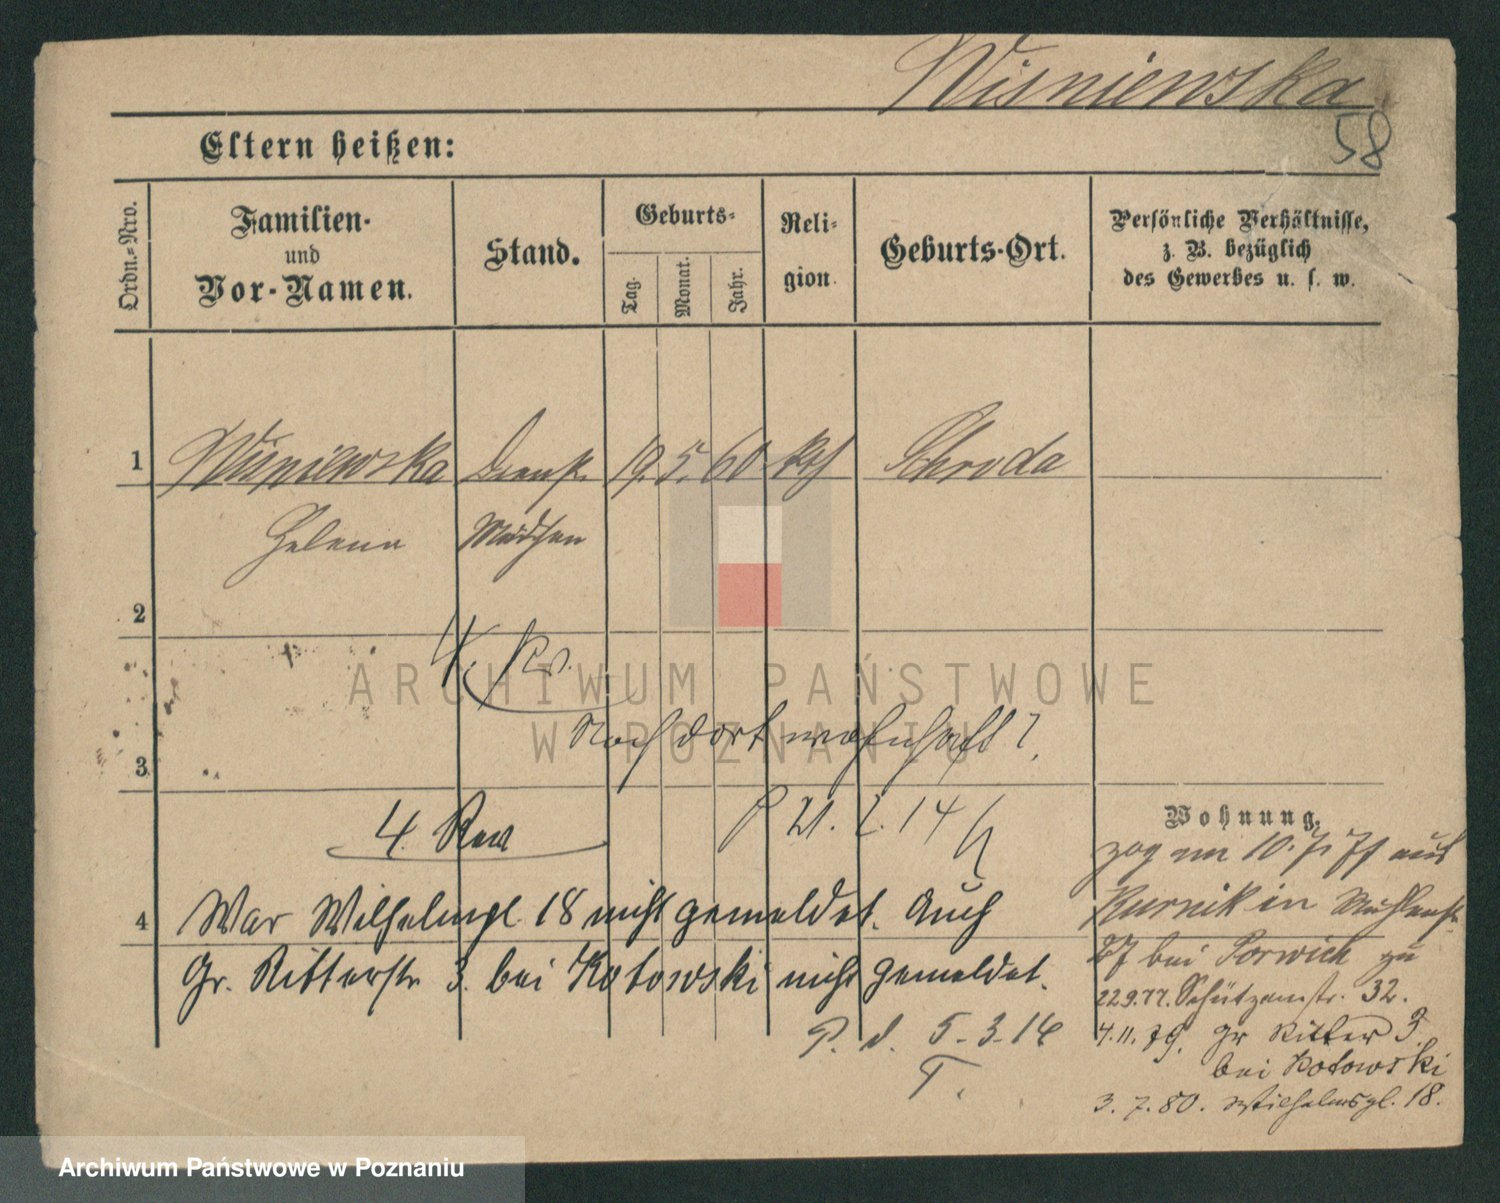 Wisniewska
58
Eltern heißen:
Ordn.-Nro.
Familien-
und
Vor-Namen.
Stand.
Geburts-
Tag.
Monat.
Jahr.
Reli-
gion.
Geburts-Ort.
Persönliche Verhältnisse,
z. B. bezüglich
des Gewerbes u. s. w.
1
Wisniewska Dienst 19. 5. 60 kth Schroda
Helena Mädchen
2
4. Rv.
ARCHIWUM PAŃSTWOWE
W POZNANIU
Noch dort wohnhaft?
3
4. Rev
P 21. 2. 14
Wohnung.
zog am 10. 7. 77 aus
Kurnik in Mühlenstr.
27 bei Porwich zu
22.9.77. Schützenstr. 32.
4.11.79. Gr Ritter 3.
bei Kotowski
3. 7. 80. Wilhelmspl. 18.
4
War Wilhelmpl. 18 nicht gemeldet. Auch
Gr. Ritterstr 3. bei Kotowski nicht gemeldet.
P. d. 5-3-14
T.
Archiwum Państwowe w Poznaniu